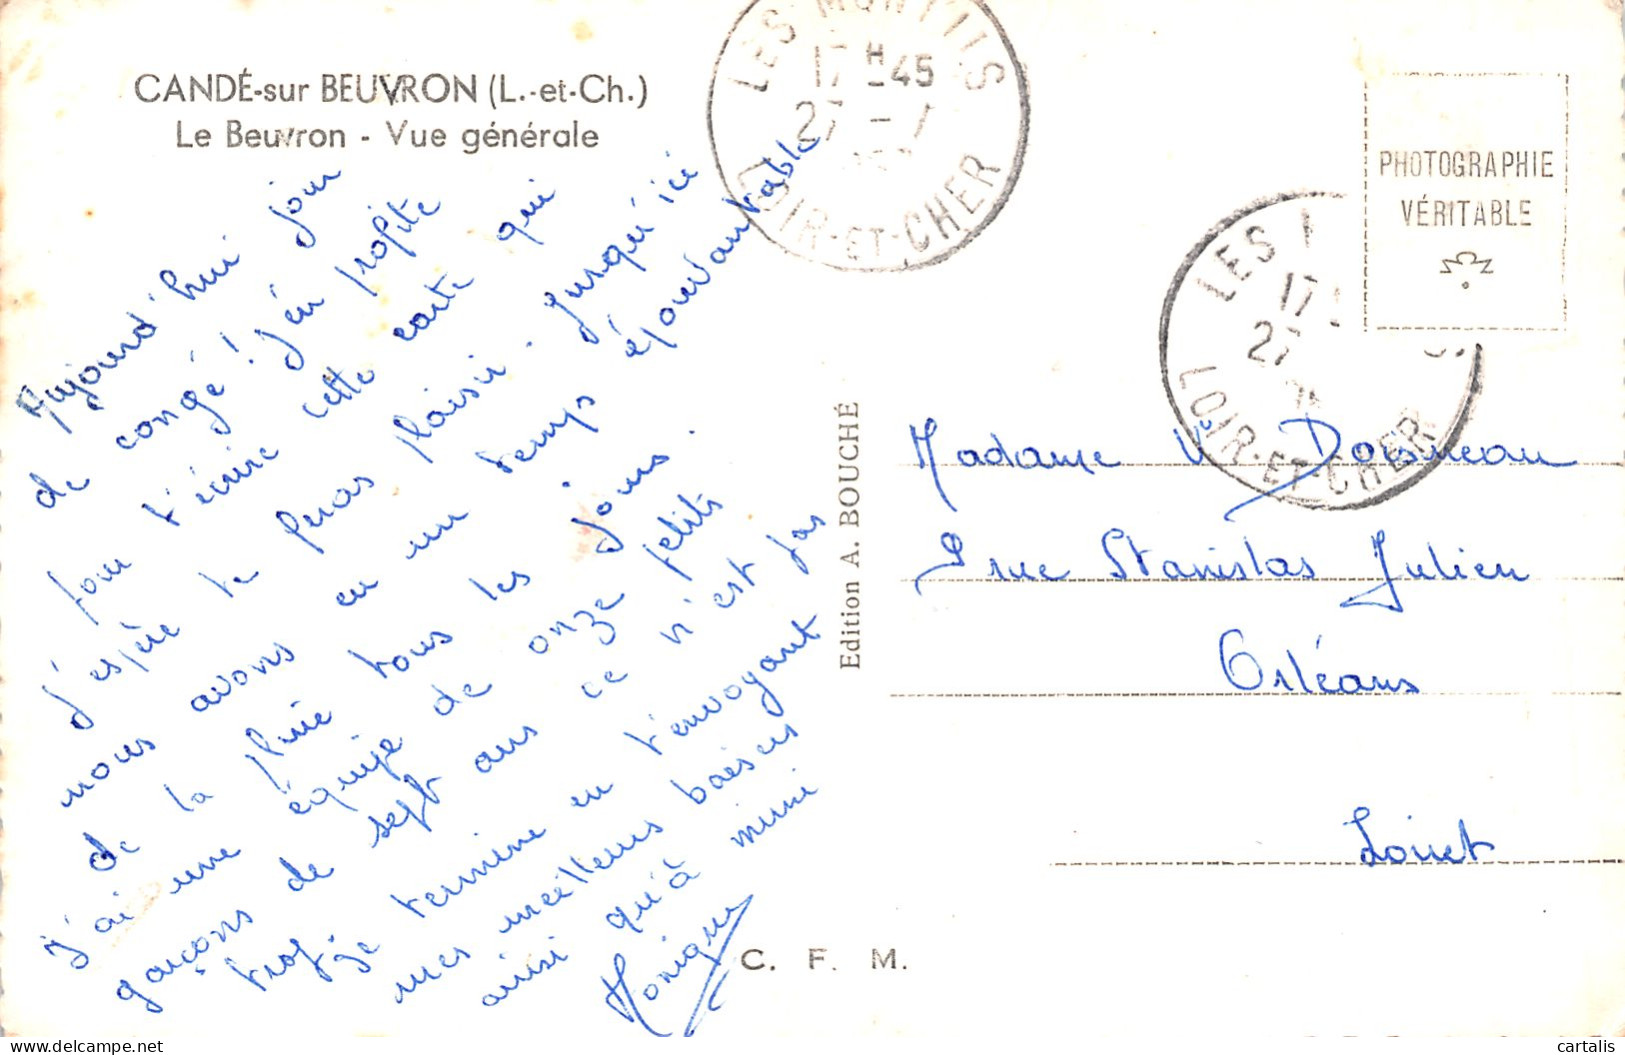 CANDÉ-sur BEUVRON (L.-et-Ch.)
Le Beuvron - Vue générale
LES MONTILS
17H-45
27 - 7
LOIR-ET-CHER
PHOTOGRAPHIE
VÉRITABLE
LES
17
27
LOIR-ET-CHER
Aujourd'hui jour
de congé! J'en profite
pour t'écrire cette carte qui
j'espère te feras plaisir. Jusqu'ici
nous avons eu un temps épouvantable
de la pluie tous les jours.
J'ai une équipe de onze petits
garçons de sept ans ce n'est pas
trop. Je termine en t'envoyant
mes meilleurs baisers
ainsi qu'à mimi
Monique
Edition A. BOUCHÉ
Madame Ve Doisneau
rue Stanislas Julien
Orléans
Loiret
C. F. M.
cartalis
delcampe.net